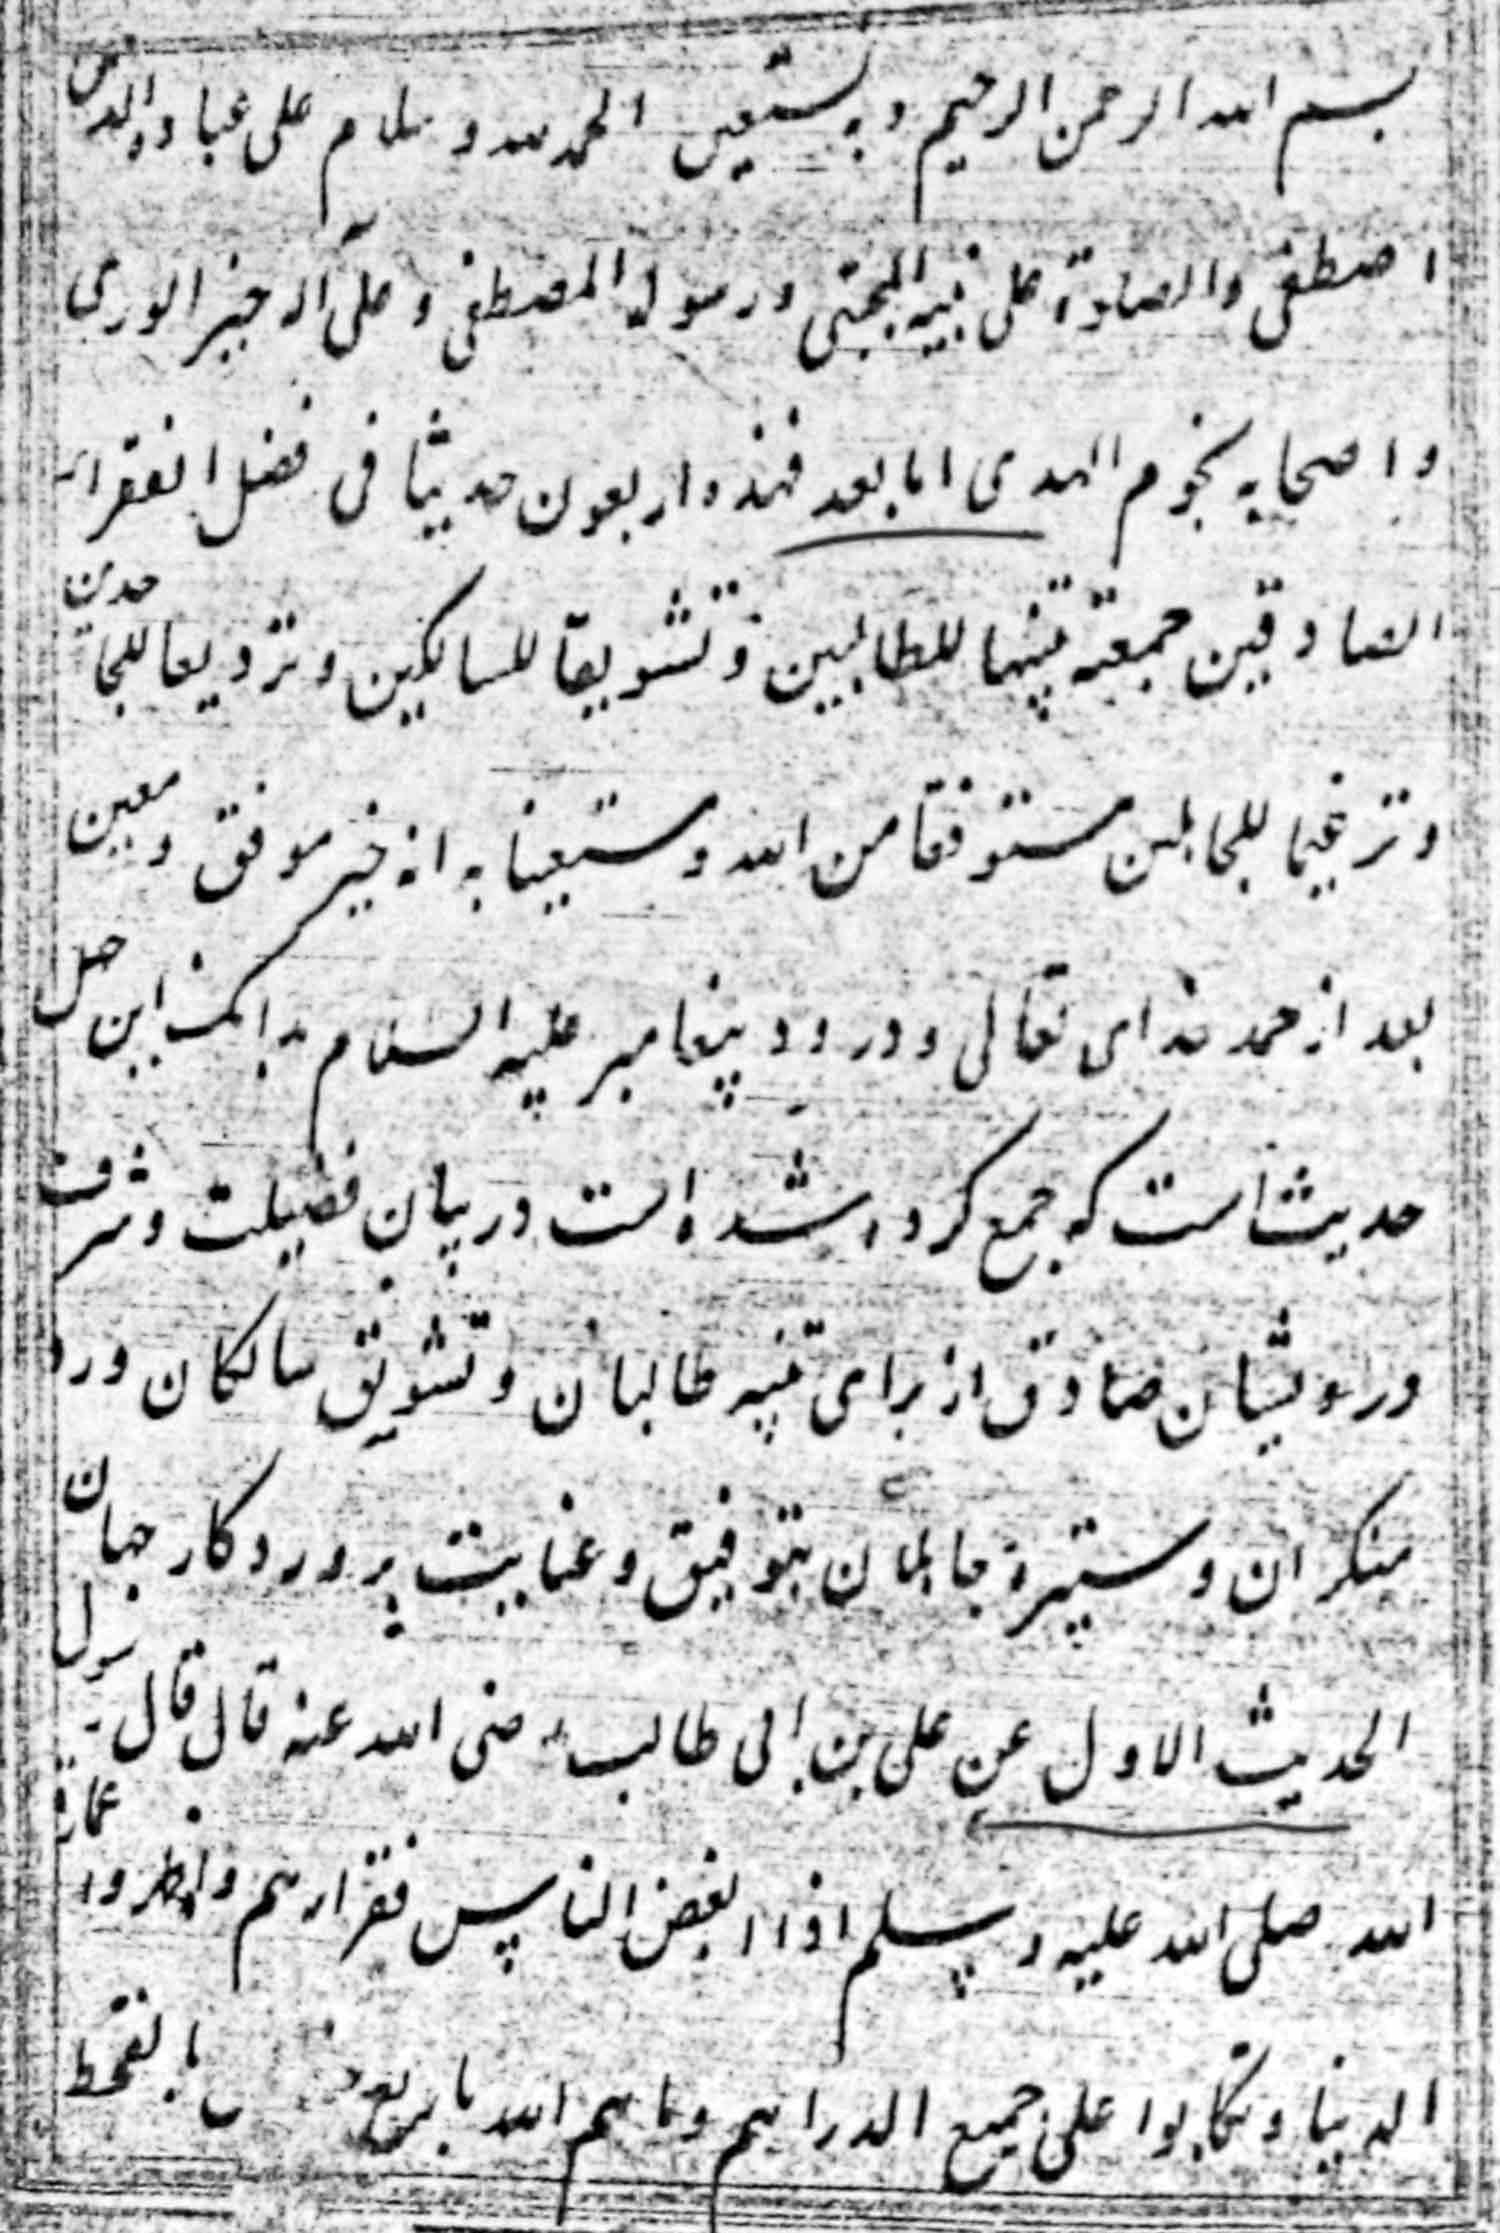 بسم الله الرحمن الرحیم وبه نستعین الحمد لله وسلام علی عباده الذین
اصطفی والصلوة علی نبیه المجتبی ورسوله المصطفی وعلی آله خیر الوری
واصحابه نجوم الهدی اما بعد فهذه اربعون حدیثا فی فضل الفقراء
الصادقین جمعته تنبیها للطالبین وتشویقا للسالکین وتردیعا للجاحدین
وترغیما للجاهلین مستوفقا من الله ومستعینا به انه خیر موفق ومعین
بعد از حمد خدای تعالی ودرود پیغامبر علیه السلام بدانک این چهل
حدیث است که جمع کرده شده است در بیان فضیلت وشرف
درویشان صادق از برای تنبیه طالبان وتشویق سالکان ورد
منکران وستیزه جاهلان بتوفیق وعنایت پروردکار جهان
الحدیث الاول عن علی بن ابی طالب رضی الله عنه قال قال رسول
الله صلی الله علیه وسلم اذا ابغض الناس فقراءهم واظهروا عمارة
الدنیا وتکالبوا علی جمیع الدراهم رماهم الله باربع بالقحط